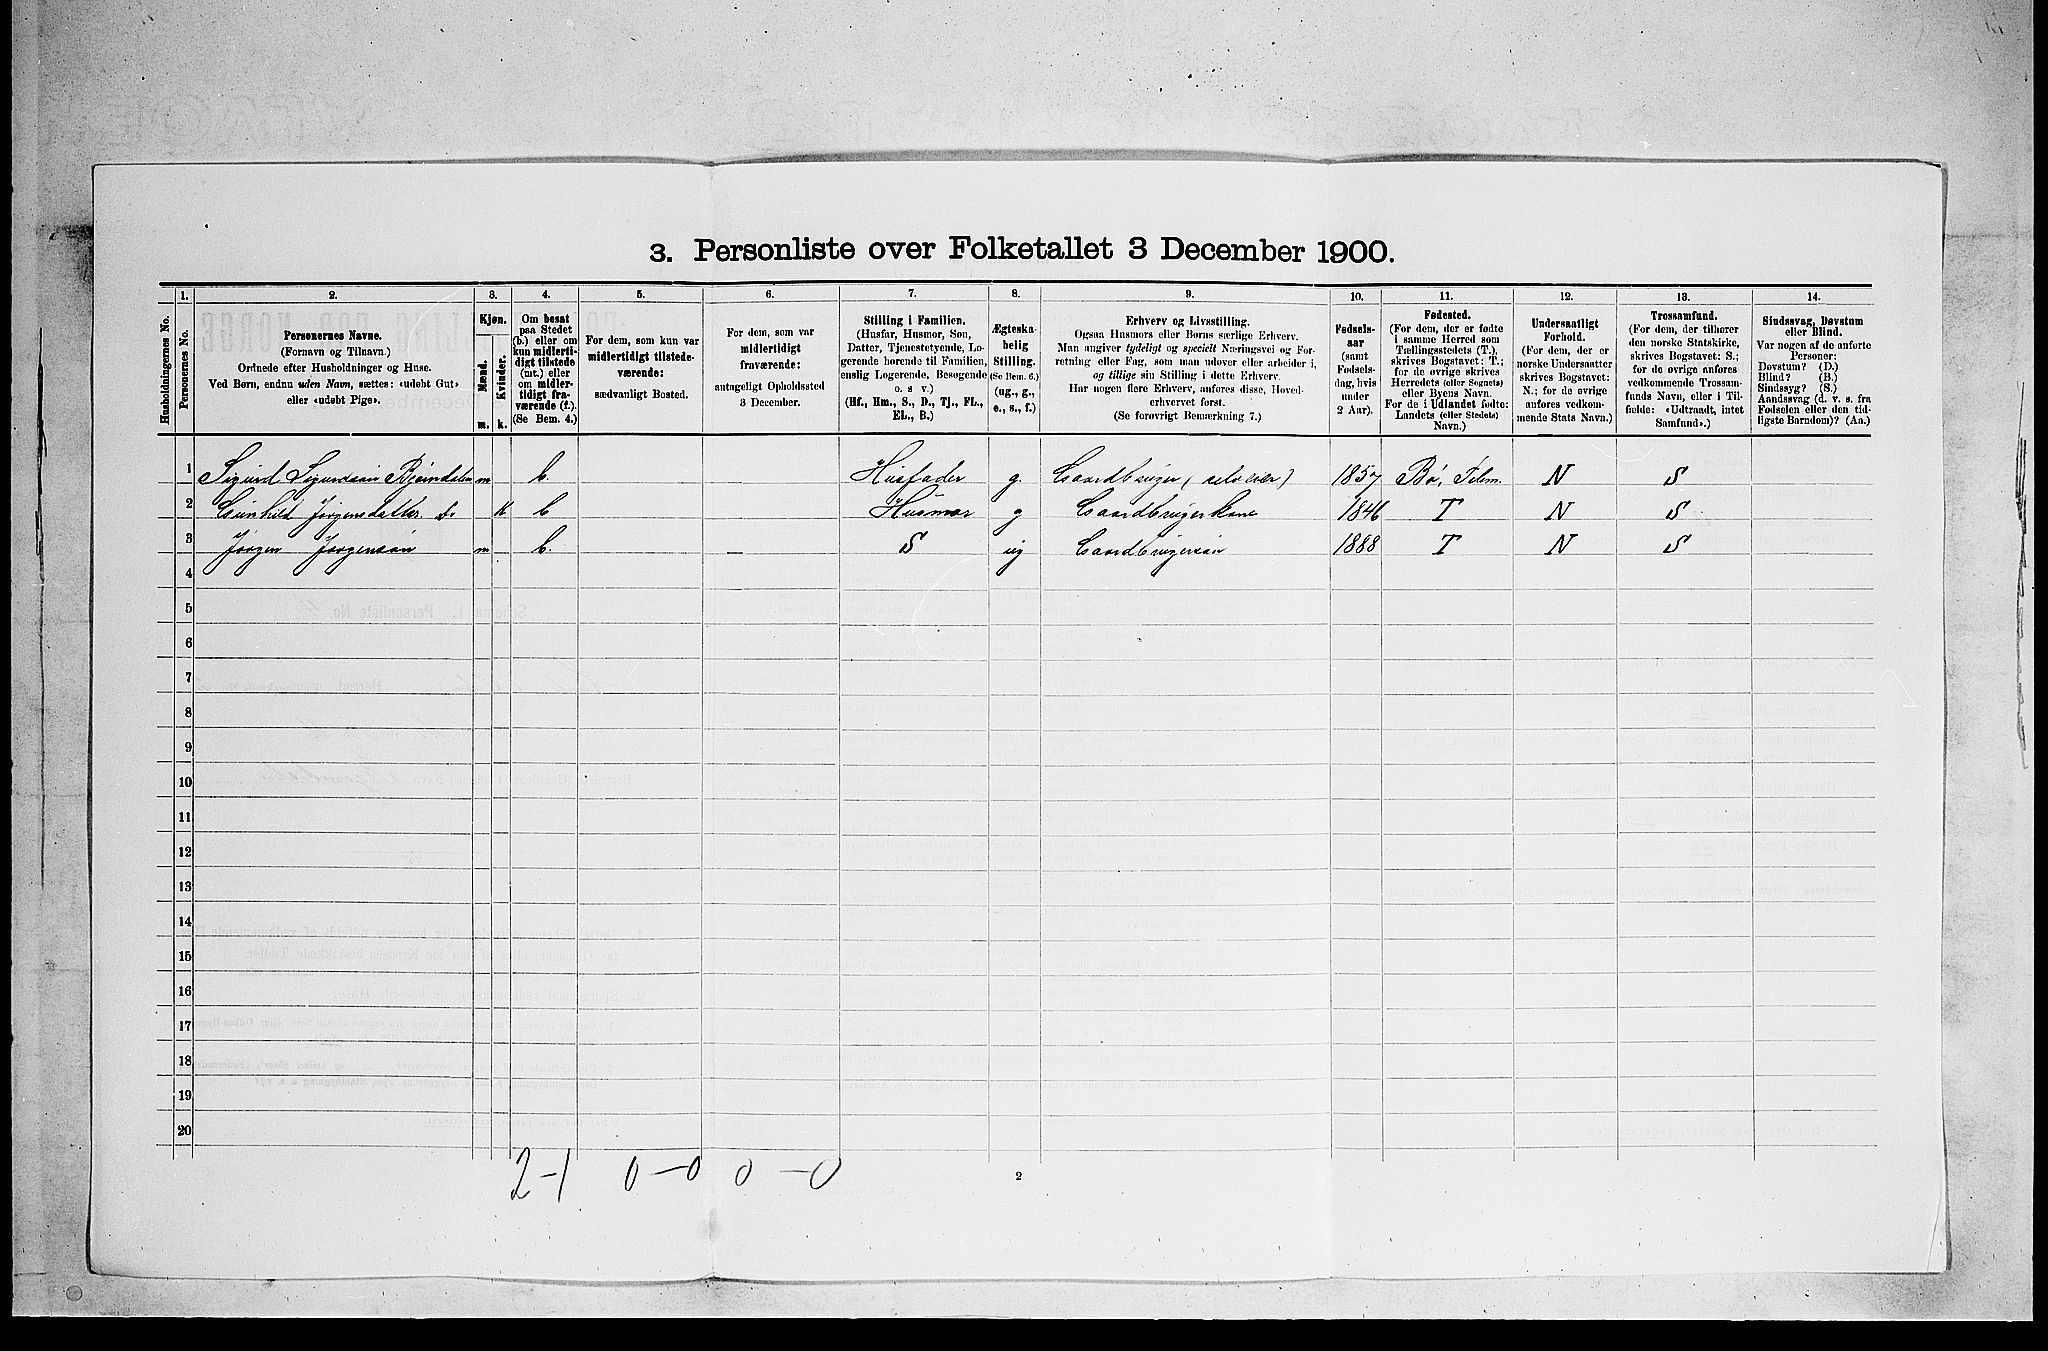 3. Personliste over Folketallet 3 December 1900.
Husholdningernes No.
1.
Personernes No.
2.
Personernes Navne.
(Fornavn og Tilnavn.)
Ordnede efter Husholdninger og Huse.
Ved Børn, endnu uden Navn, sættes: «udøbt Gut»
eller «udøbt Pige».
3.
Kjøn.
Mænd.
Kvinder.
m. k.
4.
Om bosat
paa Stedet
(b.) eller om
kun midlerti-
digt tilstede
(mt.) eller
om midler-
tidigt fra-
værende (f.).
(Se Bem. 4.)
5.
For dem, som kun var
midlertidigt tilstede-
værende:
sædvanligt Bosted.
6.
For dem, som var
midlertidigt
fraværende:
antageligt Opholdssted
3 December.
7.
Stilling i Familien.
(Husfar, Husmor, Søn,
Datter, Tjenestetyende, Lo-
gerende hørende til Familien,
enslig Logerende, Besøgende
o. s v.)
(Hf., Hm., S., D., Tj., FL.,
EL., B.)
8.
Ægteska-
belig
Stilling.
(Se Bem. 6.)
(ug., g.,
e., s., f.)
9.
Erhverv og Livsstilling.
Ogsaa Husmors eller Børns særlige Erhverv.
Man angiver tydeligt og specielt Næringsvei og For-
retning eller Fag, som man udøver eller arbeider i,
og tillige sin Stilling i dette Erhverv.
Har nogen flere Erhverv, anføres disse, Hoved-
erhvervet først.
(Se forøvrigt Bemærkning 7.)
10.
Fødsels-
aar
(samt
Fødsels-
dag, hvis
under
2 Aar).
11.
Fødested.
(For dem, der er fødte
i samme Herred som
Tællingsstedets (T.),
skrives Bogstavet: T.;
for de øvrige skrives
Herredets (eller Sognets)
eller Byens Navn.
For de i Udlandet fødte:
Landets (eller Stedets)
Navn.)
12.
Undersaatligt
Forhold.
(For dem, der er
norske Undersaatter
skrives Bogstavet:
N.; for de øvrige
anføres vedkom-
mende Stats Navn.)
13.
Trossamfund.
(For dem, der tilhører
den norske Statskirke,
skrives Bogstavet: S.;
for de øvrige anføres
vedkommende Trossam-
funds Navn, eller i Til-
fælde: «Udtraadt, intet
Samfund».)
14.
Sindssvag, Døvstum
eller Blind.
Var nogen af de anførte
Personer:
Døvstum? (D.)
Blind? (B.)
Sindssyg? (S.)
Aandssvag (d. v. s. fra
Fødselen eller den tid-
ligste Barndom)? (Aa.)
1 Sigurd Sigurdsøn Bjørndalen m b. Husfader g. Gaardbruger (selveier) 1857 Bø, Telem. N S
2 Gunhild Jørgensdatter do K b Husmor g Gaardbrugerkone 1846 T N S
3 Jørgen Jørgensøn m b. — S ug Gaardbrugersøn 1888 T N S
4
5
6
7
8
9
10
11
12
13
14
15
16
17
18
19
20
2-1 0-0 0-0
2